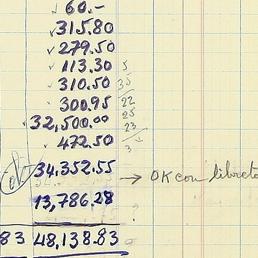 60.-
315.80
279.50
113.30 5
310.50 35
300.95 22
32,500.00 25
23
472.50 3
ok 34.352.55 → OK con libreta
13,786.28
83 48,138.83